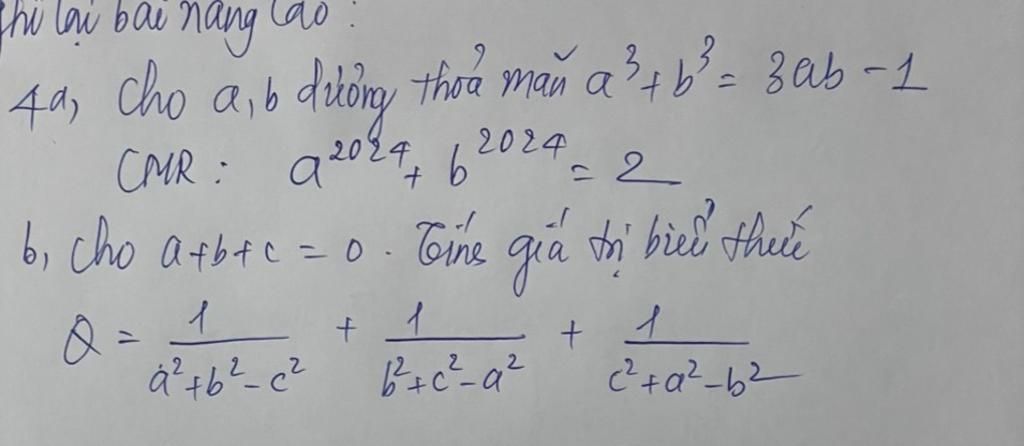 thi lại bài nâng cao:
4a, Cho a, b dương thoả mãn a³ + b³ = 3ab - 1
CMR: a²⁰²⁴ + b²⁰²⁴ = 2
b, Cho a+b+c = 0. Tính giá trị biểu thức
Q = 1/(a²+b²-c²) + 1/(b²+c²-a²) + 1/(c²+a²-b²)